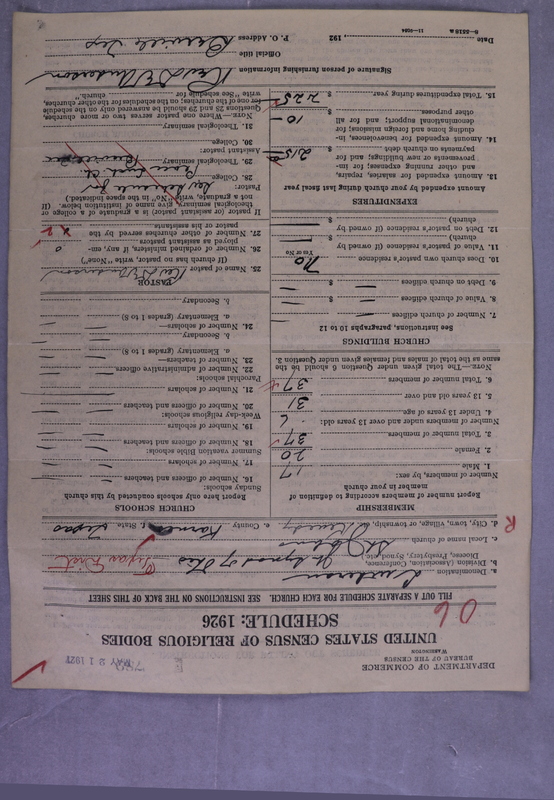 DEPARTMENT OF COMMERCE
BUREAU OF THE CENSUS
WASHINGTON
MAY 21 1927
UNITED STATES CENSUS OF RELIGIOUS BODIES
SCHEDULE: 1926
06
FILL OUT A SEPARATE SCHEDULE FOR EACH CHURCH. SEE INSTRUCTIONS ON THE BACK OF THIS SHEET
a. Denomination Lutheran
b. Division (Association, Conference, Diocese, Presbytery, Synod, etc. Synod of
Texas Dist
c. Local name of church St Johns
d. City, town, village, or township, e. County Karnes f. State Texas
R
MEMBERSHIP
Report number of members according to definition of member in your church
Number of members, by sex:
1. Male 17
2. Female 20
3. Total number of members 37
Number of members under and over 13 years old:
4. Under 13 years of age 6
5. 13 years old and over 31
6. Total number of members 37
NOTE.—The total given under Question 6 should be the same as the total of males and females given under Question 3.
CHURCH BUILDINGS
See Instructions, paragraphs 10 to 12
7. Number of church edifices
8. Value of church edifices $
9. Debt on church edifices $
10. Does church own pastor's residence No
Yes or No
11. Value of pastor's residence (if owned by church) $
12. Debt on pastor's residence (if owned by church) $
EXPENDITURES
Amount expended by your church during last fiscal year
13. Amount expended for salaries, repairs, and other running expenses; for improvements or new buildings; and for payments on church debt $ 215
14. Amount expended for benevolences, including home and foreign missions; for denominational support; and for all other purposes $ 10
15. Total expenditures during year $ 225
CHURCH SCHOOLS
Report here only schools conducted by this church
Sunday schools:
16. Number of officers and teachers
17. Number of scholars
Summer vacation Bible schools:
18. Number of officers and teachers
19. Number of scholars
Week-day religious schools:
20. Number of officers and teachers
21. Number of scholars
Parochial schools:
22. Number of administrative officers
23. Number of teachers—
a. Elementary (grades 1 to 8)
b. Secondary
24. Number of scholars—
a. Elementary (grades 1 to 8)
b. Secondary
PASTOR
25. Name of pastor
(If church has no pastor, write "None")
26. Number of ordained ministers, if any, employed as assistant pastors 0
27. Number of other churches served by the pastor or his assistants
If pastor (or assistant pastor) is a graduate of a college or theological seminary, give name of institution below. (If not a graduate, write "No" in the space indicated.)
Pastor:
28. College
29. Theological seminary
Assistant pastor:
30. College
31. Theological seminary
NOTE.—Where one pastor serves two or more churches, Questions 28 and 29 should be answered only on the schedule for one of the churches; on the schedule for the other churches, write "See schedule for church."
Signature of person furnishing information
Official title
P. O. Address
Date 192
8—5518 a